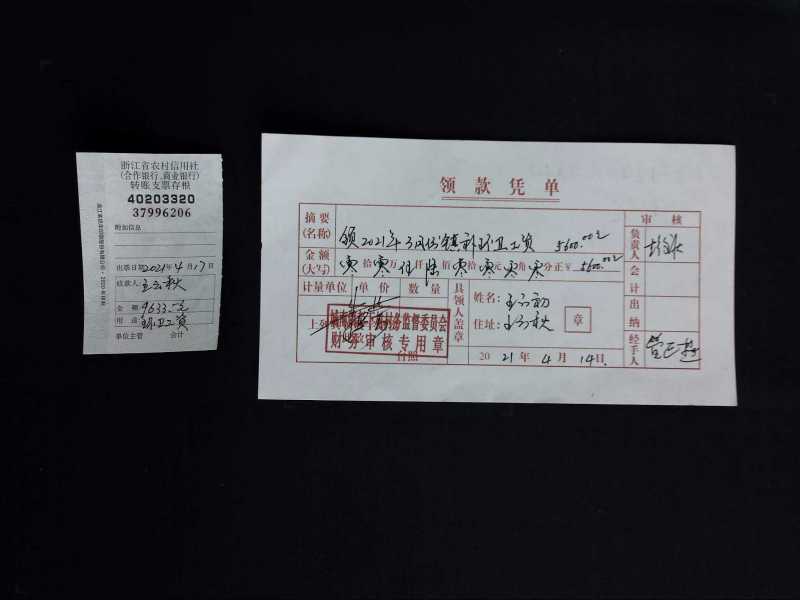 浙江省农村信用社
(合作银行、商业银行)
转账支票存根
40203320
37996206
附加信息
出票日期2021年4月17日
收款人:王云秋
金额:9633.00元
用途:环卫工资
单位主管 会计
领款凭单
摘要(名称) 领2021年3月份镇补环卫工资 5600.00元
金额(大写) 零拾零万伍仟陆佰零拾零元零角零分正¥5600.00元
计量单位 单价 数量
上列
台照
监督委员会
财务审核专用章
具领人盖章
姓名:
住址: 章
2021年4月14日
审核
负责人
会计
出纳
经手人